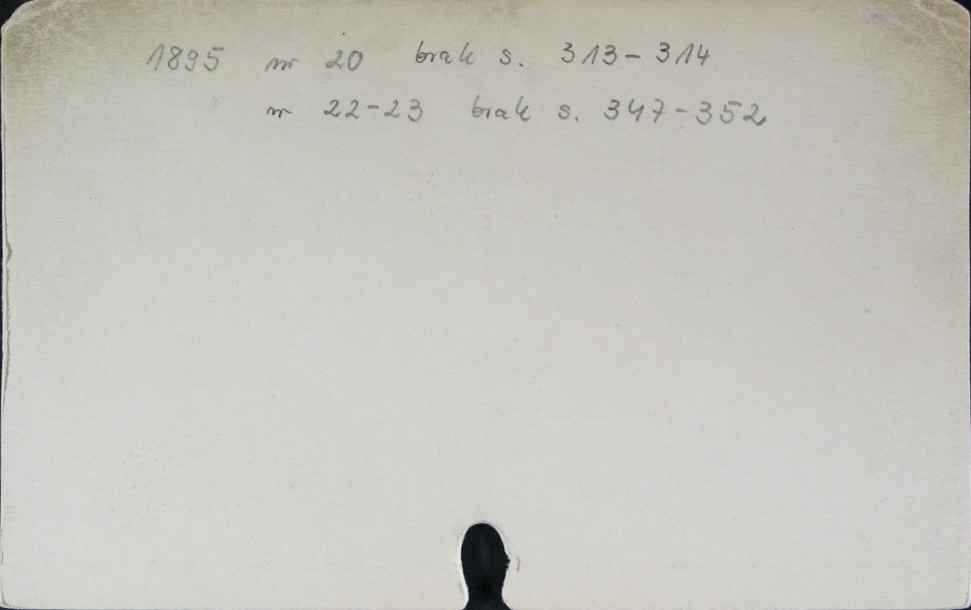 1895 nr 20 brak s. 313-314
nr 22-23 brak s. 347-352